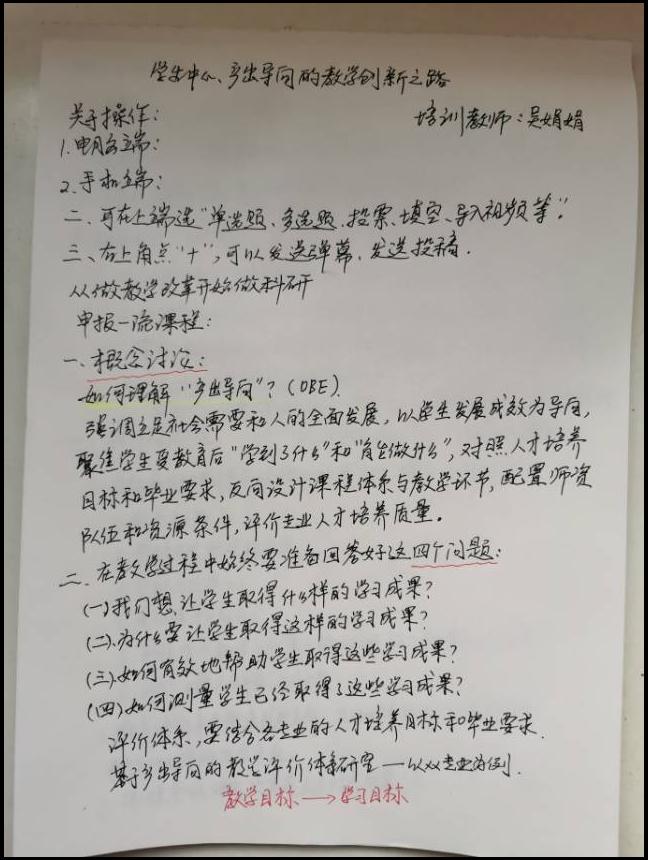 学生中心、产出导向的教学创新之路
关于操作：
培训教师：吴娟娟
1.电脑端：
2.手机端：
二、可在上端选“单选题、多选题、投票、填空、导入视频等”。
三、右上角点“+”，可以发送弹幕、发送投稿.
从做教学改革开始做科研
申报一流课程：
一、概念讨论：
如何理解“产出导向”？(OBE)
强调立足社会需要和人的全面发展，以学生发展成效为导向，
聚焦学生受教育后“学到了什么”和“能做什么”，对照人才培养
目标和毕业要求，反向设计课程体系与教学环节，配置师资
队伍和资源条件，评价专业人才培养质量。
二、在教学过程中始终要准备回答好这四个问题：
(一)我们想让学生取得什么样的学习成果？
(二).为什么要让学生取得这样的学习成果？
(三).如何有效地帮助学生取得这些学习成果？
(四)如何测量学生已经取得了这些学习成果？
评价体系，要结合各专业的人才培养目标和毕业要求.
基于产出导向的教学评价体系研究——以xx专业为例.
教学目标→学习目标